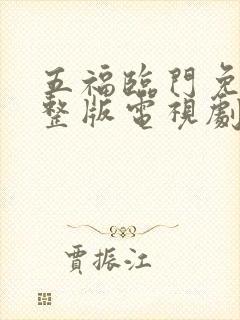 五福臨門免
整版電視劇
賈振江